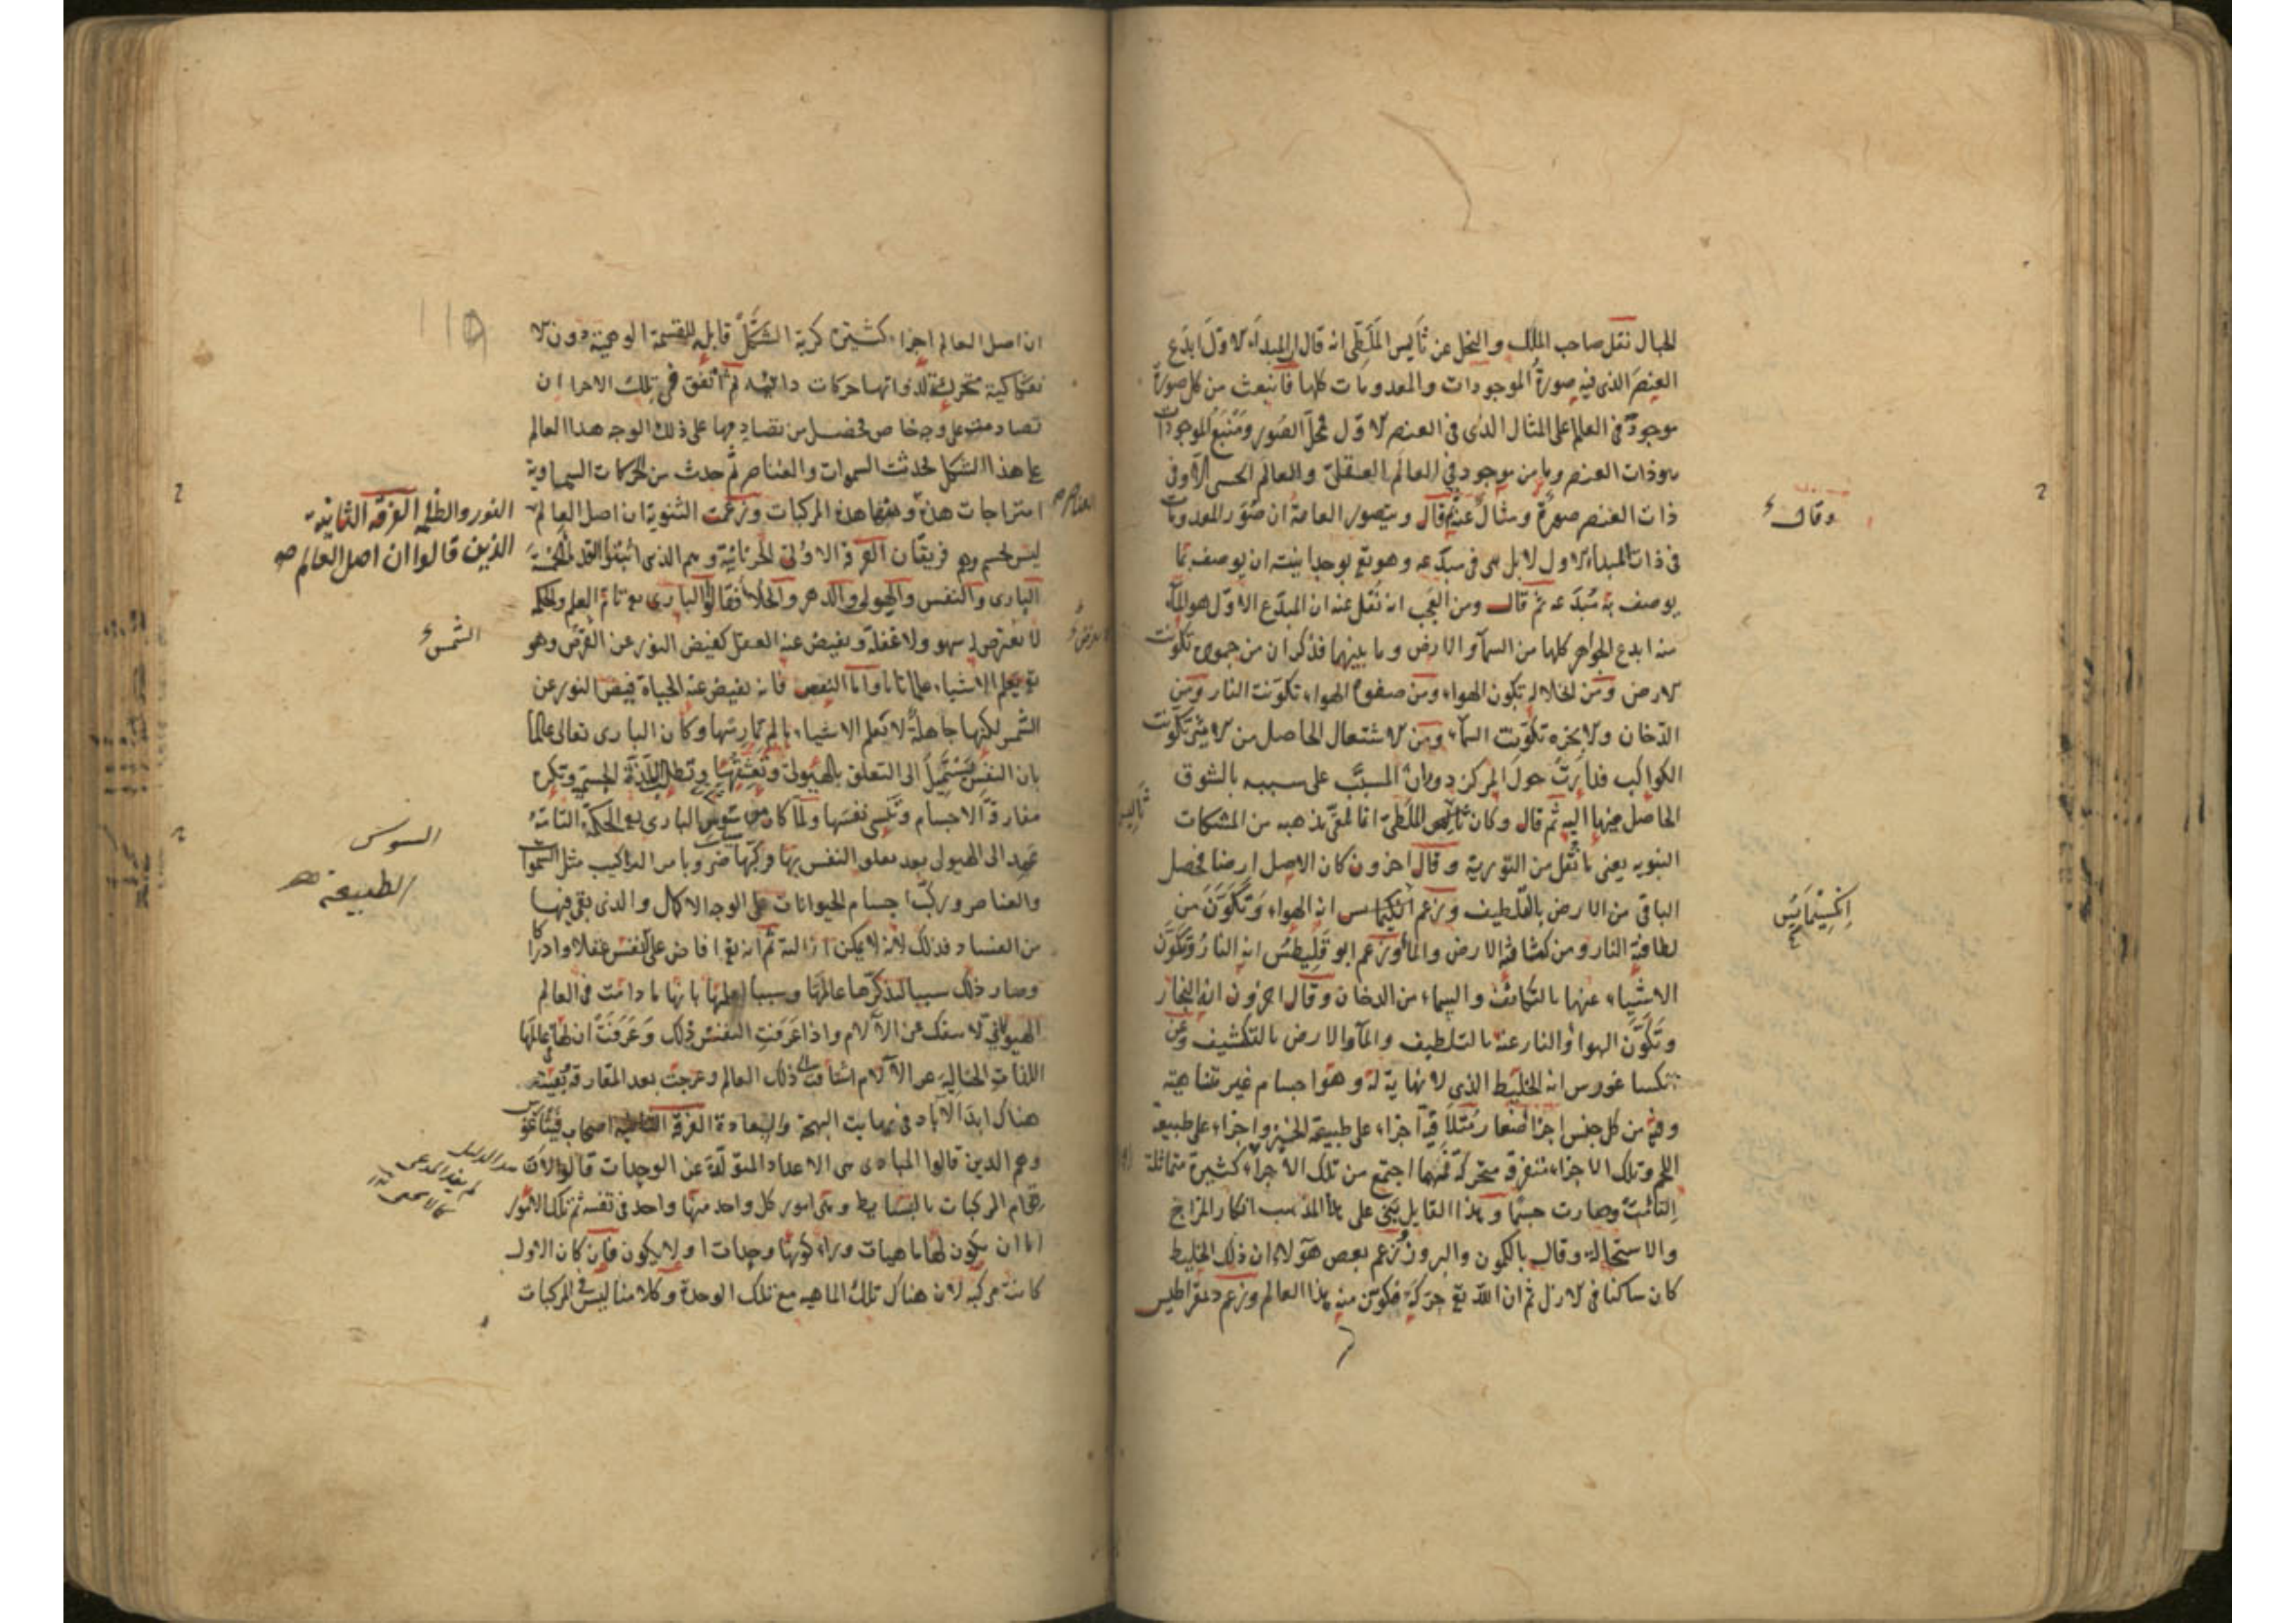 الحبال نقل صاحب الملل والنحل عن ثاليس الملطى انه قال ان المبداء الاول ابدع
العنصر الذى فيه صورة الموجودات والمعدومات كلها فانبعث من كل صورة
موجود فى العالم على المثال الذى فى العنصر الاول فمحل الصور ومنبع الموجودات
هو ذات العنصر وما من موجود فى العالم العقلى والعالم الحسى الا وفى
ذات العنصر صورة ومثال عنه قال ويتصور العامة ان صور المعدومات
فى ذات المبداء الاول لا بل هى فى مبدعه وهو تع بوحدانيته ان يوصف بما
يوصف به مبدعه ثم قال ومن العجب انه نقل عنه ان المبدع الاول هو الماء
منه ابدع الجواهر كلها من السماء والارض وما بينهما فذكر ان من جموده تكونت
الارض ومن انحلاله تكون الهواء ومن صفوة الهواء تكونت النار ومن
الدخان والابخرة تكونت السماء ومن الاشتعال الحاصل من الاثير تكونت
الكواكب فدارت حول المركز دوران المسبب على سببه بالشوق
الحاصل فيها اليه ثم قال وكان ثاليس الملطى انما تلقى مذهبه من المشكات
النبويه يعنى ما نقل من التورية وقال اخرون كان الاصل ارضا فحصل
الباقى من الارض بالتلطيف وزعم انكيمايس انه الهواء وتكون من
لطافته النار ومن كثافته الارض والماء وزعم ابو قليطس انه النار وتكون
الاشياء عنها بالتكاثف والسماء من الدخان وقال اخرون انه البخار
وتكون الهواء والنار عنه بالتلطيف والماء والارض بالتكثيف وعن
انكساغورس انه الخليط الذى لا نهاية له وهو اجسام غير متناهية
وفيه من كل جنس اجزا صغار مثلا فيه اجزاء على طبيعة الخبز واجزاء على طبيعة
اللحم وتلك الاجزاء متفرقة متحركة فمهما اجتمع من تلك الاجزاء كثيرة متماثلة
التأمت وصارت جسما وهذا القايل بنى على هذا المذهب انكار المزاج
والاستحالة وقال بالكمون والبروز وزعم بعض هؤلاء ان ذلك الخليط
كان ساكنا فى الازل ثم ان الله تع حركه فكون منه هذا العالم وزعم دمقراطيس
وقالء
ثاليس
انكسيمايس
١١٥
ان اصل العالم اجزاء كثيرة كرية الشكل قابلة للقسمة الوهمية دون الا
نفكاكية متحركة لذواتها حركات دائمة ثم اتفق فى تلك الاجزا ان
تصادمت على وجه خاص فحصل من تصادمها على ذلك الوجه هذا العالم
على هذا الشكل فحدثت السموات والعناصر ثم حدث من الحركات السماوية
امتزاجات هذه ومنها هذه المركبات وزعمت الثنوية ان اصل العالم
ليس بجسم وهم فريقان الفرقة الاولى الحرنانية وهم الذى اثبتوا القدماء الخمسة
البارى والنفس والهيولى والدهر والخلاء فقالوا البارى تع تام العلم والحكمة
لا يعرض له سهو ولا غفلة ويفيض عنه العقل كفيض النور عن القرص وهو
تع يعلم الاشياء علما تاما واما النفس فانه يفيض عنه الحياة فيض النور عن
الشمس لكنها جاهلة لا تعلم الاشياء ما لم تمارسها وكان البارى تعالى عالما
بان النفس تستميل الى التعلق بالهيولى وتعشقها وتطلب اللذة الجسمية وتكره
مفارقة الاجسام وتنسى نفسها ولما كان من سوس البارى تع الحكمة التامة
عمد الى الهيولى بعد تعلق النفس بها فركبها ضروبا من التراكيب مثل السموات
والعناصر وركب اجسام الحيوانات على الوجه الاكمل والذى بقى فيها
من الفساد فذلك لانه لا يمكن ازالته ثم انه تع افاض على النفس عقلا وادراكا
وصار ذلك سببا لتذكرها عالمها وسببا لعلمها بانها ما دامت فى العالم
الهيولانى لا تنفك عن الآلام واذا عرفت النفس ذلك وعرفت ان لها فى عالمها
اللذات الخالية عن الآلام اشتاقت الى ذلك العالم وعرجت بعد المفارقة وبقيت
هناك ابد الآباد فى نهايت البهجة والسعادة الفرقة الثانية اصحاب فيثاغورس
وهم الذين قالوا المبادى هى الاعداد المتولدة عن الوحدات قالوا لان
قوام المركبات بالبسايط وهى امور كل واحد منها واحد فى نفسه ثم تلك الامور
اما ان يكون لها ماهيات وراء كونها وحدات او لا يكون فان كان الاول
كانت مركبة لان هناك تلك الماهية مع تلك الوحدة وكلامنا ليس فى المركبات
العناصر
النور والظلمة الفرقة الثانية
الذين قالوا ان اصل العالم صح
الشمسء
السوس
الطبيعة صح